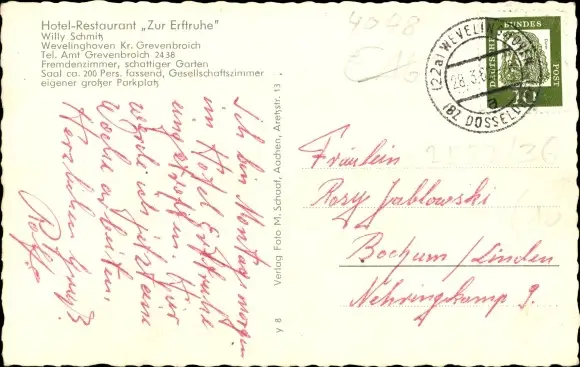 Hotel-Restaurant „Zur Erftruhe"
Willy Schmitz
Wevelinghoven Kr. Grevenbroich
Tel. Amt Grevenbroich 2438
Fremdenzimmer, schattiger Garten
Saal ca. 200 Pers. fassend, Gesellschaftszimmer
eigener großer Parkplatz
Ich bin Montag morgen
im Hotel Erftruhe
angetroffen. Hier
werde ich jetzt eine
Woche arbeiten.
Herzlichen Gruß
Rolf
y 8 Verlag Foto M. Schaaf, Aachen, Aretzstr. 13
4048
(22a) WEVELINGHOVEN
28.3.6
a
(BZ. DÜSSELD
DEUTSCHE BUNDES POST
10
Fräulein
Rosy Jablowski
Bochum/Linden
Nehringskamp 9.